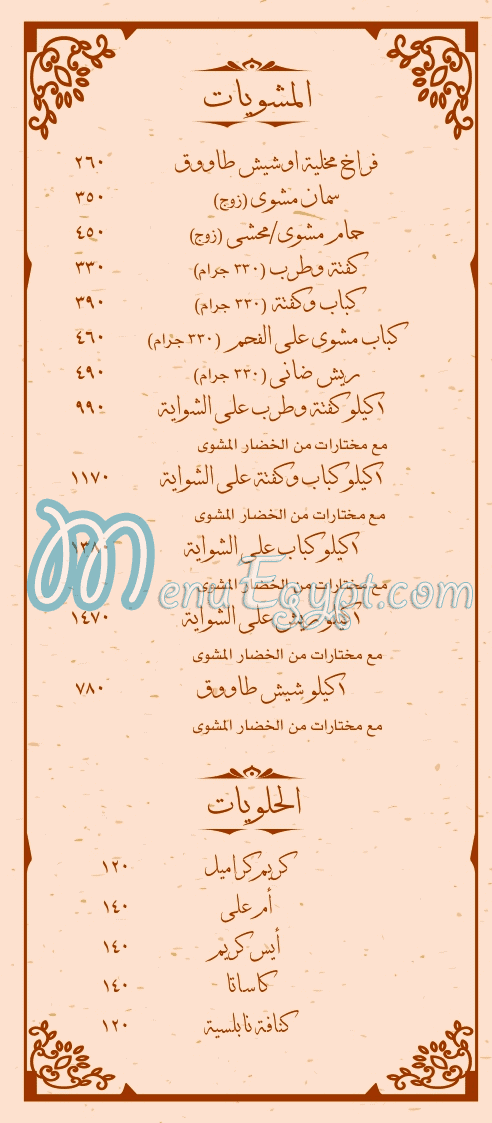 المشويات
فراخ مخلية اوشيش طاووق ٢٦٠
سمان مشوى (زوج) ٣٥٠
حمام مشوى/محشى (زوج) ٤٥٠
كفتة وطرب (٣٣٠ جرام) ٣٣٠
كباب وكفتة (٣٣٠ جرام) ٣٩٠
كباب مشوى على الفحم (٣٣٠ جرام) ٤٦٠
ريش ضانى (٣٣٠ جرام) ٤٩٠
١كيلو كفتة وطرب على الشواية ٩٩٠
مع مختارات من الخضار المشوى
١كيلو كباب وكفتة على الشواية ١١٧٠
مع مختارات من الخضار المشوى
١كيلو كباب على الشواية ١٣٨٠
مع مختارات من الخضار المشوى
MenuEgypt.com
١كيلو ريش على الشواية ١٤٧٠
مع مختارات من الخضار المشوى
١كيلو شيش طاووق ٧٨٠
مع مختارات من الخضار المشوى
الحلويات
كريم كراميل ١٢٠
أم على ١٤٠
أيس كريم ١٤٠
كاساتا ١٤٠
كنافة نابلسية ١٢٠